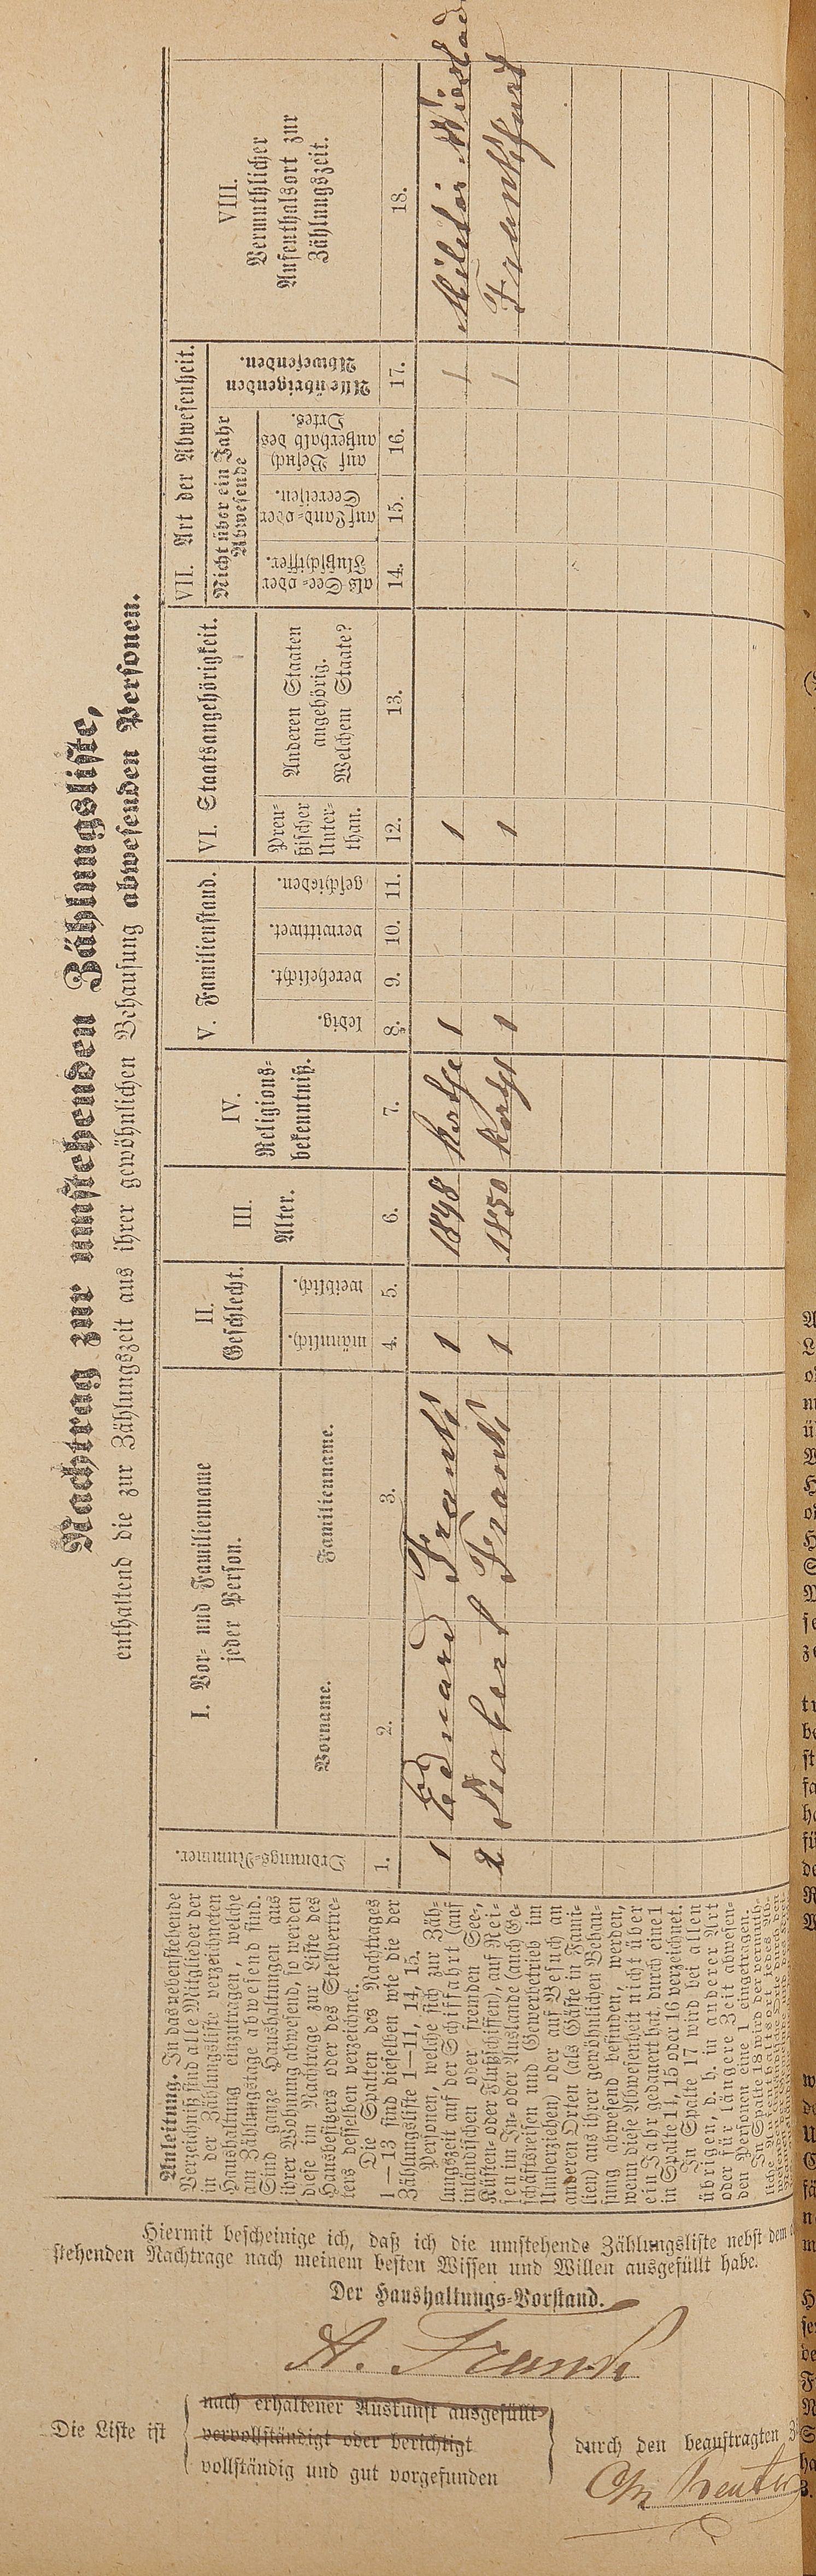 Nachtrag zur umstehenden Zählungsliste,
enthaltend die zur Zählungszeit aus ihrer gewöhnlichen Behausung abwesenden Personen.
Anleitung. In das nebenstehende
Verzeichniß sind alle Mitglieder der
in der Zählungsliste verzeichneten
Haushaltung einzutragen, welche
am Zählungstage abwesend sind.
Sind ganze Haushaltungen aus
ihrer Wohnung abwesend, so werden
diese im Nachtrage zur Liste des
Hausbesitzers oder des Stellvertre-
ters desselben verzeichnet.
Die Spalten des Nachtrages
1—13 sind dieselben wie die der
Zählungsliste 1—11, 14, 15.
Personen, welche sich zur Zäh-
lungszeit auf der Schifffahrt (auf
inländischen oder fremden See-,
Küsten- oder Flußschiffen), auf Rei-
sen im In- oder Auslande (auch Ge-
schäftsreisen und Gewerbetrieb im
Umherziehen) oder auf Besuch an
anderen Orten (als Gäste in Fami-
lien) aus ihrer gewöhnlichen Behau-
sung abwesend befinden, werden,
wenn diese Abwesenheit nicht über
ein Jahr gedauert hat, durch eine 1
in Spalte 14, 15 oder 16 verzeichnet.
In Spalte 17 wird bei allen
übrigen, d. h. in anderer Art
oder für längere Zeit abwesen-
den Personen eine 1 eingetragen.
In Spalte 18 wird der vermuth-
liche Aufenthaltsort jedes Ab-
Ordnungs-Nummer.
I. Vor- und Familienname
jeder Person.
Vorname.
Familienname.
II.
Geschlecht.
männlich.
weiblich.
III.
Alter.
IV.
Religions-
bekenntniß.
V. Familienstand.
ledig.
verehelicht.
verwittwet.
geschieden.
VI. Staatsangehörigkeit.
Preu-
ßischer
Unter-
than.
Anderen Staaten
angehörig.
Welchem Staate?
VII. Art der Abwesenheit.
Nicht über ein Jahr
Abwesende
als See- oder
Flußschiffer.
auf Land- oder
Seereisen.
auf Besuch
außerhalb des
Ortes.
Alle übrigenden
Abwesenden.
VIII.
Vermuthlicher
Aufenthalsort zur
Zählungszeit.
1. 2. 3. 4. 5. 6. 7. 8. 9. 10. 11. 12. 13. 14. 15. 16. 17. 18.
1 Eduard Frank 1 1848 Kathe 1 1 1 Militär Wiesbad
2 Robert Frank 1 1850 Kath 1 1 1 Frankfurt
Hiermit bescheinige ich, daß ich die umstehende Zählungsliste nebst dem
stehenden Nachtrage nach meinem besten Wissen und Willen ausgefüllt habe.
Der Haushaltungs-Vorstand.
A. Frank
Die Liste ist
nach erhaltener Auskunft ausgefüllt
vervollständigt oder berichtigt
vollständig und gut vorgefunden
durch den beauftragten